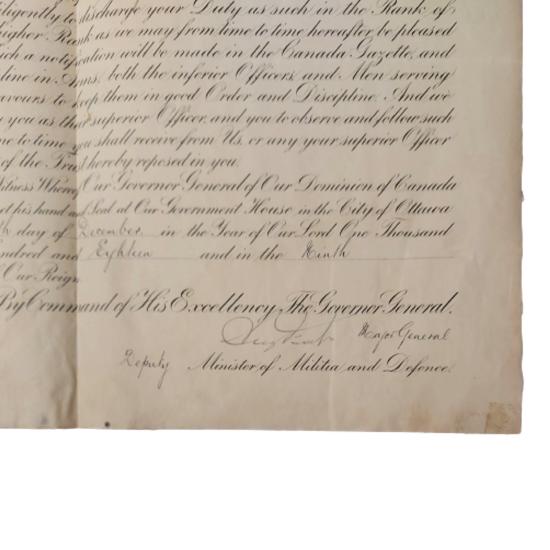 iligently to discharge your Duty as such in the Rank of
igher Rank as we may from time to time hereafter be pleased
ch a notification will be made in the Canada Gazette, and
line in Arms, both the inferior Officers and Men serving
avours to keep them in good Order and Discipline. And we
you as their superior Officer, and you to observe and follow such
me to time you shall receive from Us, or any your superior Officer
of the Trust hereby reposed in you.
Witness Whereof Our Governor General of Our Dominion of Canada
et his hand and Seal at Our Government House in the City of Ottawa
th day of December in the Year of Our Lord One Thousand
undred and Eighteen and in the Ninth
Our Reign.
By Command of His Excellency, The Governor General.
Major General
Deputy Minister of Militia and Defence.